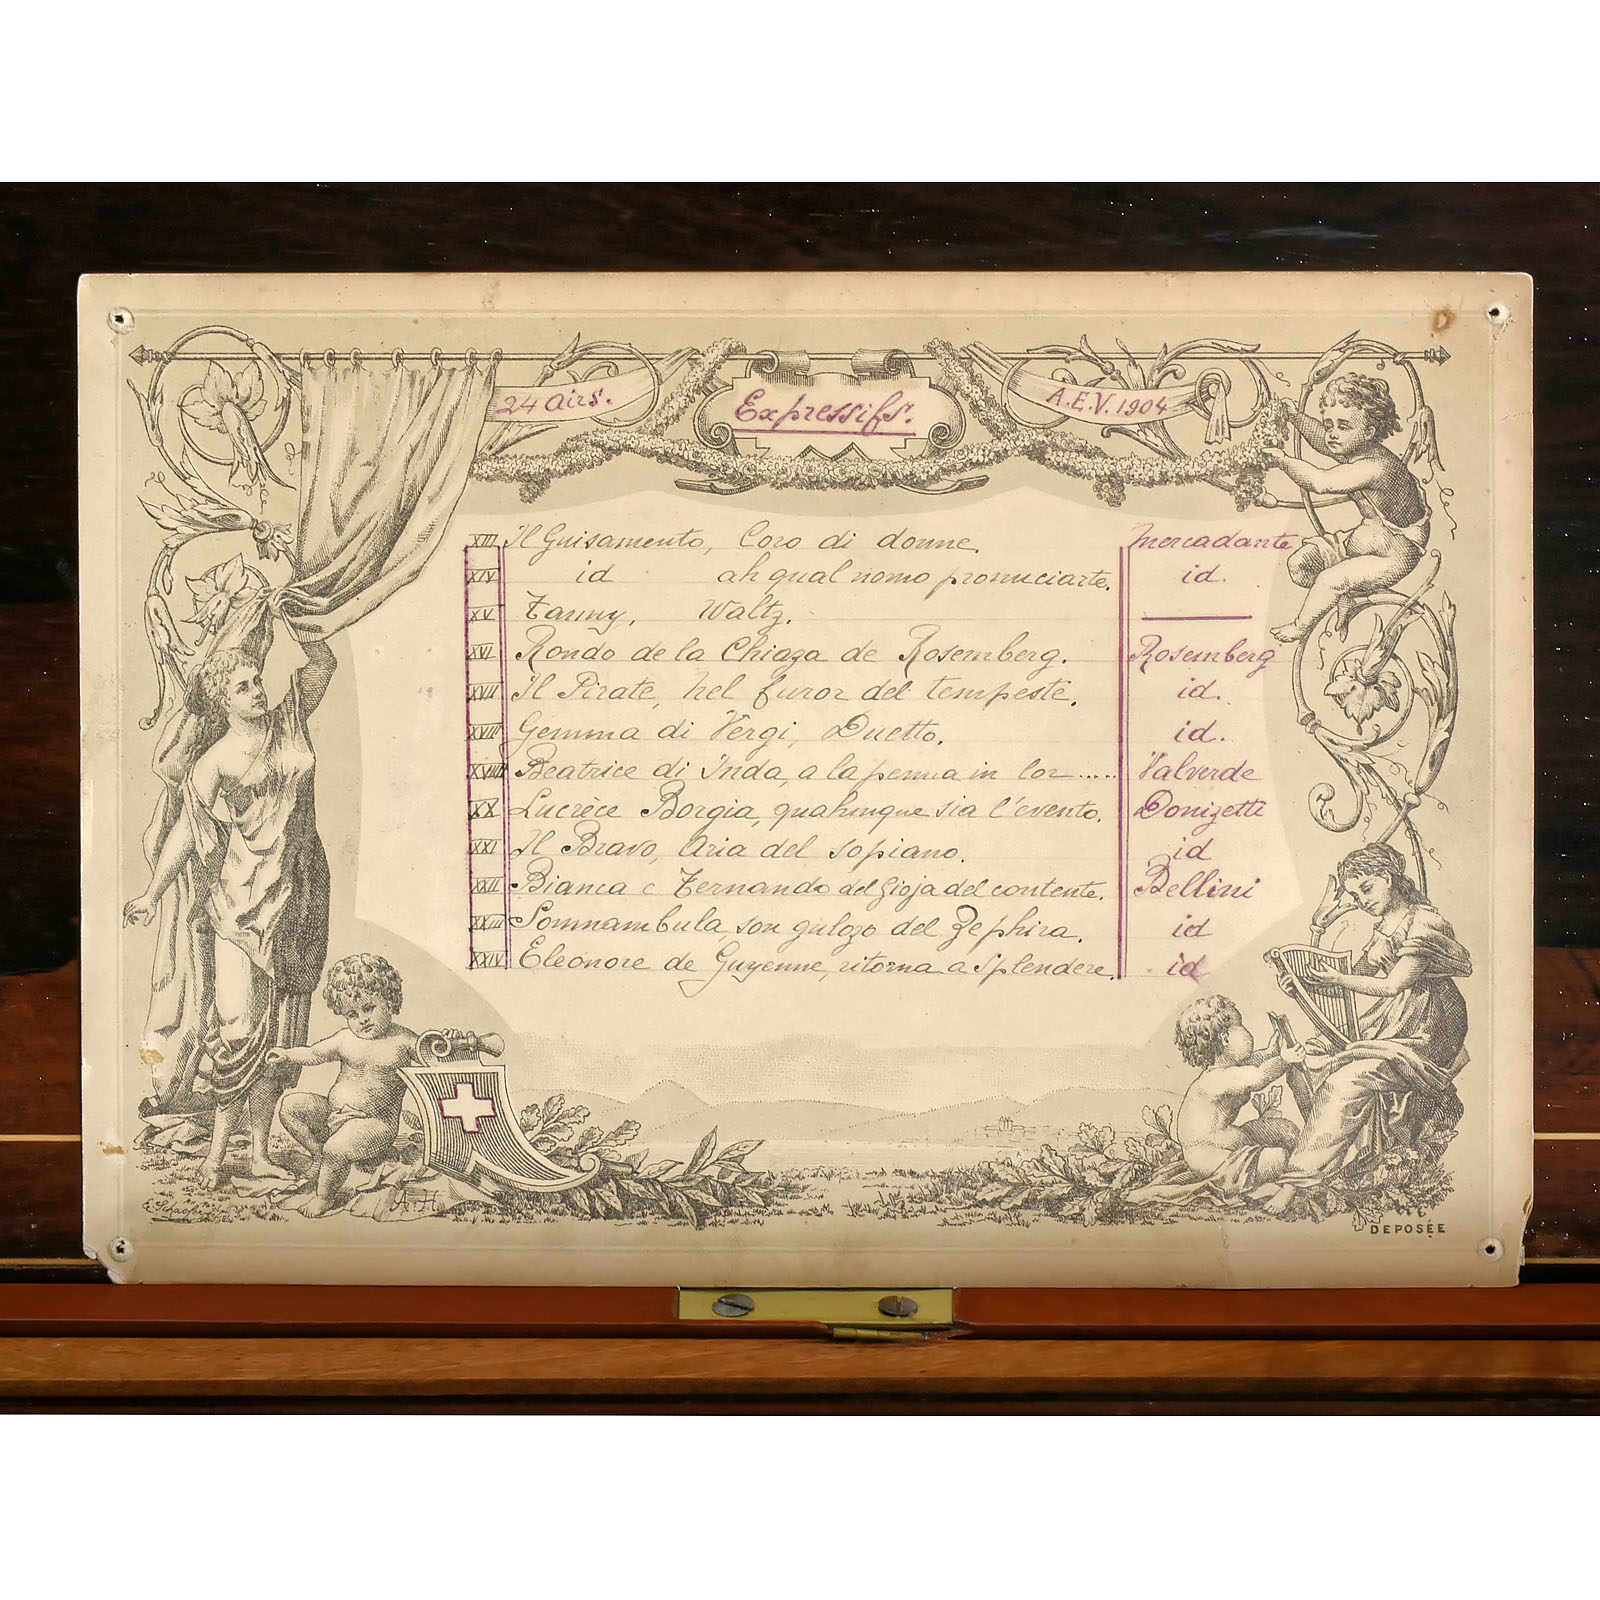 24 Airs.
Expressifs.
A.E.V. 1904
XIII Il Guisamento, Coro di donne. Mercadante
XIV id ah qual nomo pronuciarte. id.
XV Fanny, Waltz.
XVI Rondo de la Chiaza de Rosemberg. Rosemberg
XVII Il Pirate, nel furor del tempeste. id.
XVIII Gemma di Vergi, Duetto. id.
XVIIII Beatrice di Tnda, a la penna in lor..... Valverde
XX Lucrèce Borgia, qualunque sia l'evento. Donizetti
XXI Il Bravo, Aria del sopiano. id
XXII Bianca e Fernando del Gioja del contente. Bellini
XXIII Somnambula, son gulozo del Zephira. id
XXIV Eleonore de Guyenne, ritorna a splendere. id
A.H
E. Schaefer
DEPOSÉE